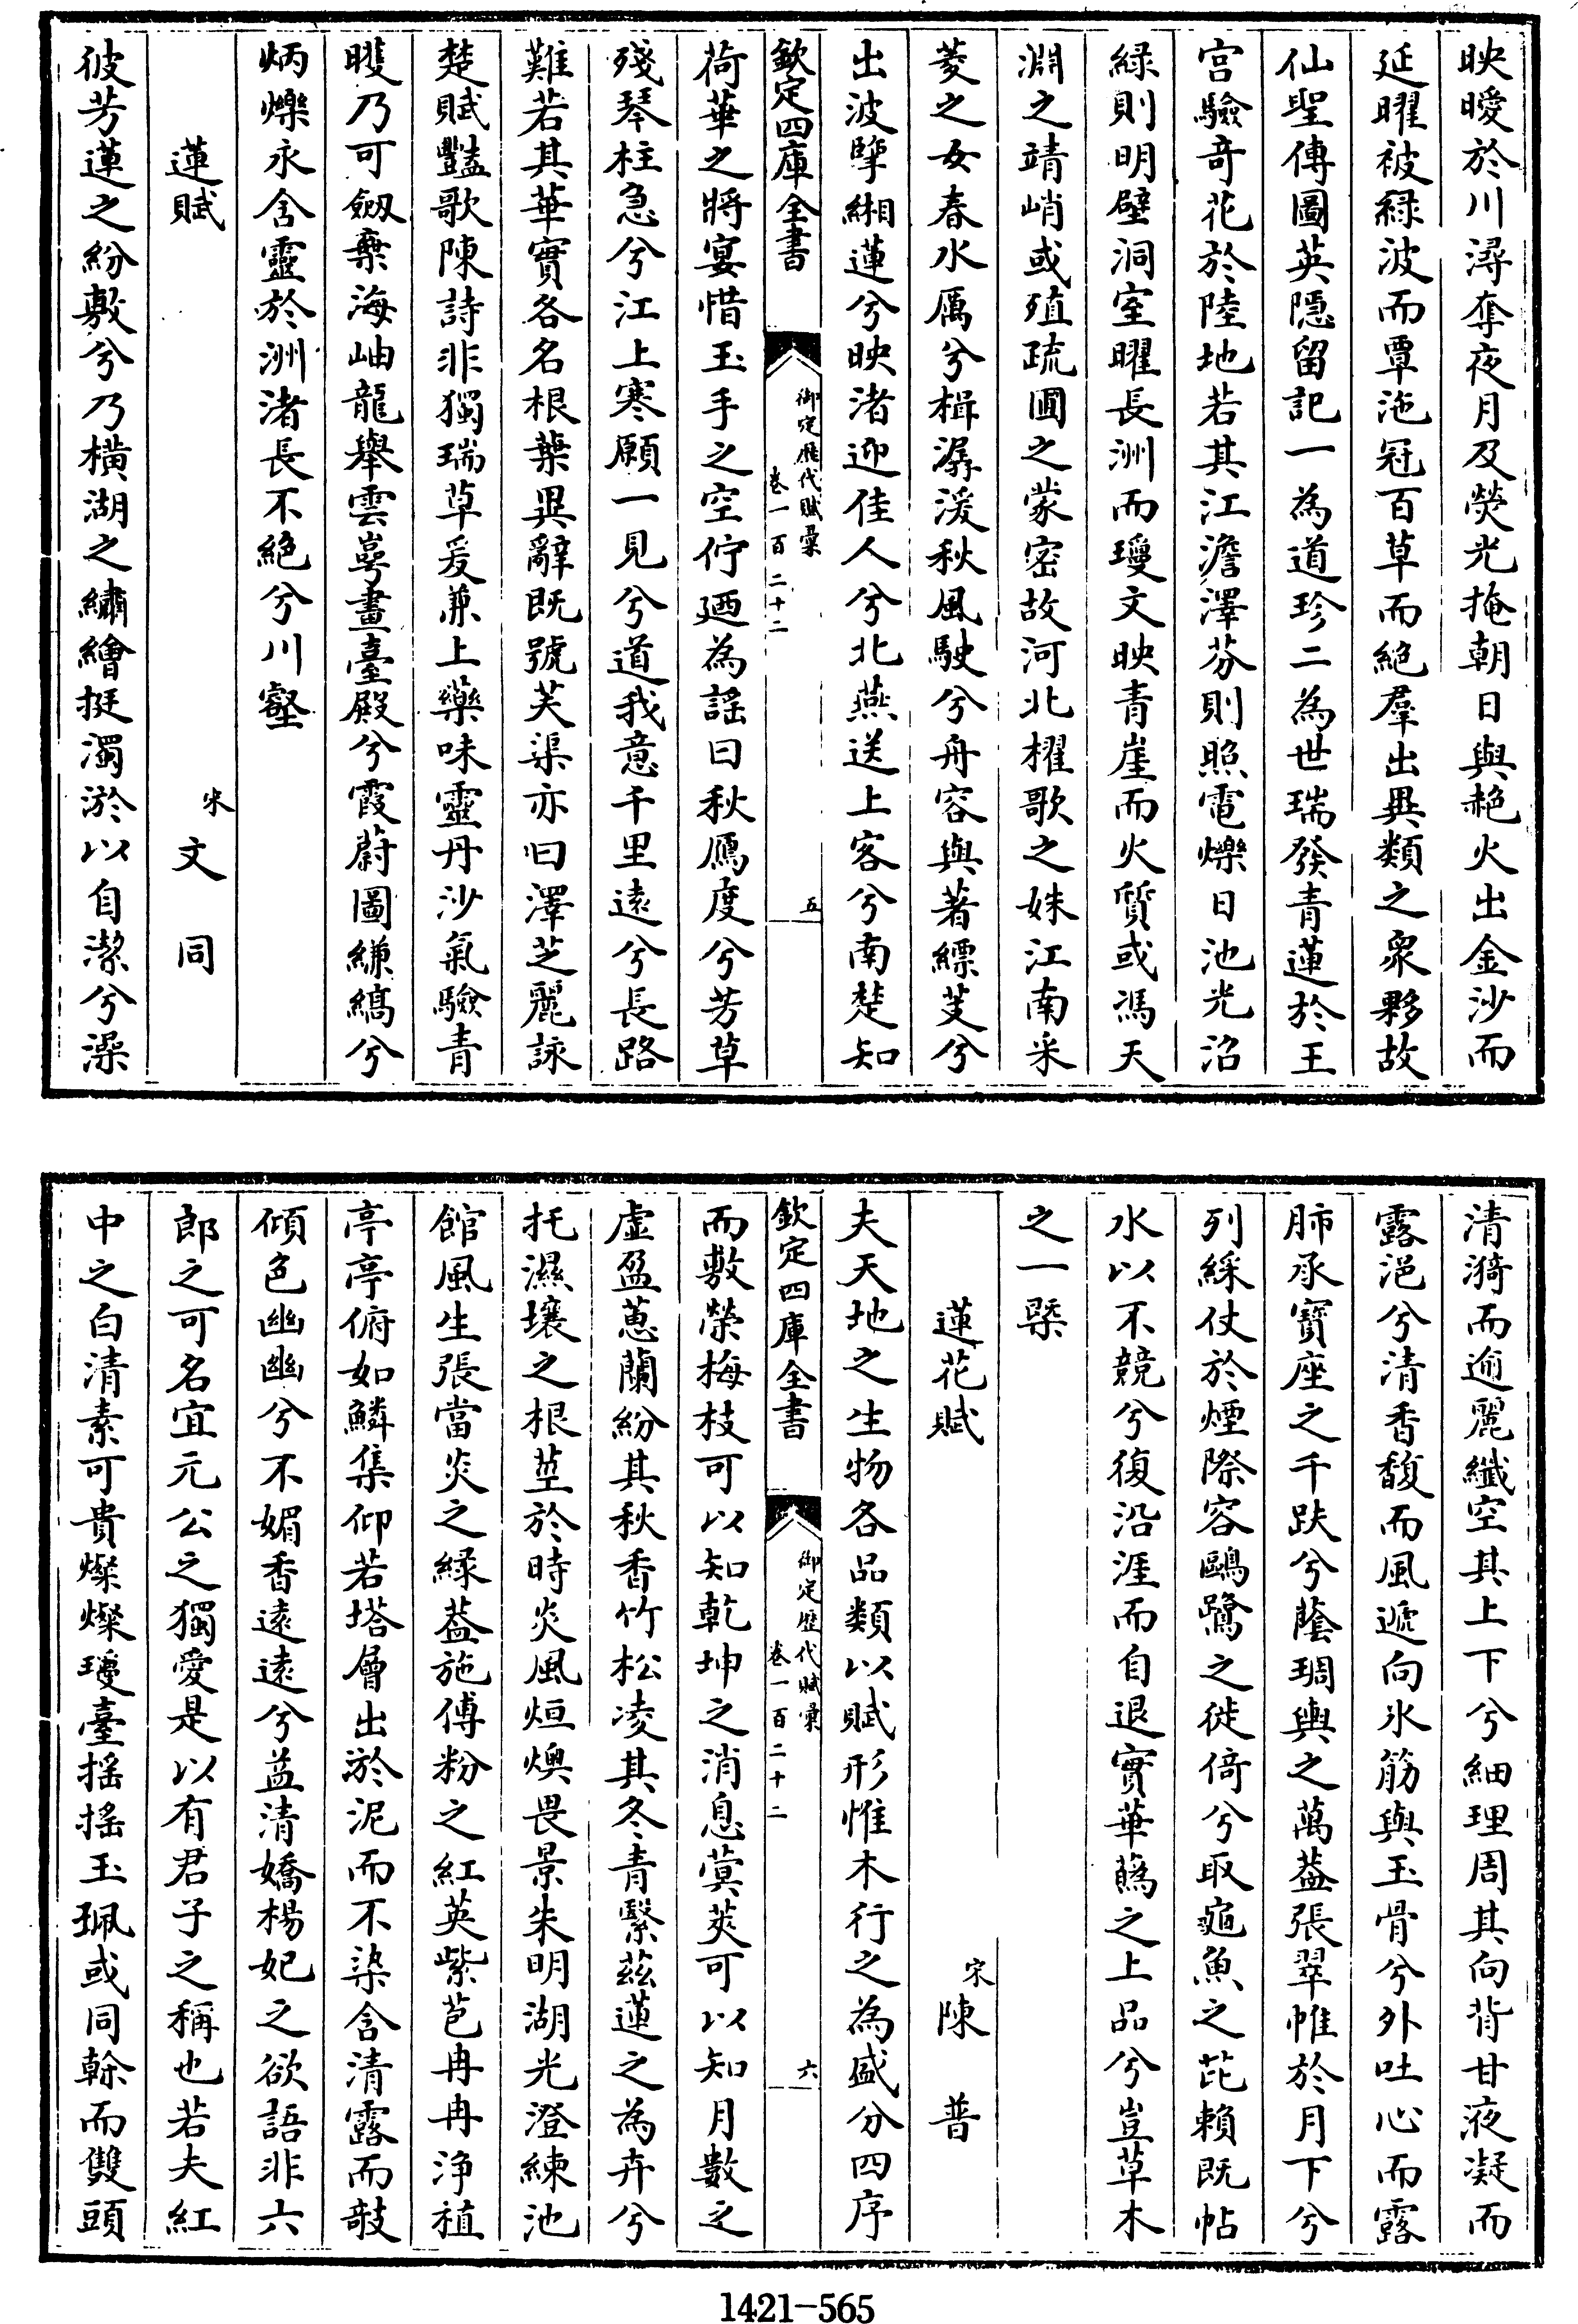 映曖於川潯奪夜月及熒光掩朝日與赩火出金沙而
延曜被綠波而覃沲冠百草而絶羣出異類之衆夥故
仙聖傳圖英隱留記一為道珍二為世瑞發青蓮於王
宫驗竒花於陸地若其江澹澤芬則照電爍日池光沼
緑則明壁洞室曜長洲而瓊文映青崖而火質或馮天
淵之靖峭或殖疏圃之蒙密故河北櫂歌之姝江南采
菱之女春水厲兮楫潺湲秋風駛兮舟容與著縹芰兮
出波擥緗蓮兮映渚迎佳人兮北燕送上客兮南楚知
欽定四庫全書
御定歷代賦彙
卷一百二十二
五
荷華之將宴惜玉手之空佇廼為謡曰秋鴈度兮芳草
殘琴柱急兮江上寒願一見兮道我意千里遠兮長路
難若其華實各名根葉異辭既號芙渠亦曰澤芝麗詠
楚賦豔歌陳詩非獨瑞草爰兼上藥味靈丹沙氣驗青
雘乃可劒棄海岫龍舉雲崿畫臺殿兮霞蔚圖縑縞兮
炳爍永含靈於洲渚長不絶兮川壑
蓮賦
宋
文同
彼芳蓮之紛敷兮乃橫湖之繡繪挺濁淤以自潔兮澡
清漪而逾麗纖空其上下兮細理周其向背甘液凝而
露浥兮清香馥而風遞向氷筋與玉骨兮外吐心而露
肺承寳座之千趺兮蔭琱輿之萬蓋張翠帷於月下兮
列綵仗於煙際容鷗鷺之徙倚兮取龜魚之芘賴既帖
水以不競兮復沿涯而自退實華蘤之上品兮豈草木
之一槩
蓮花賦
宋
陳普
夫天地之生物各品類以賦形惟木行之為盛分四序
欽定四庫全書
御定歷代賦彙
卷一百二十二
六
而敷榮梅枝可以知乾坤之消息蓂莢可以知月數之
虚盈蕙蘭紛其秋香竹松凌其冬青繄茲蓮之為卉兮
托濕壤之根莖於時炎風烜燠畏景朱明湖光澄練池
館風生張當炎之緑葢施傅粉之紅英紫苞冉冉浄植
亭亭俯如鱗集仰若塔層出淤泥而不染含清露而敧
傾色幽幽兮不媚香遠遠兮益清嬌楊妃之欲語非六
郎之可名宜元公之獨愛是以有君子之稱也若夫紅
中之白清素可貴燦燦瓊臺揺揺玉珮或同榦而雙頭
1421-565